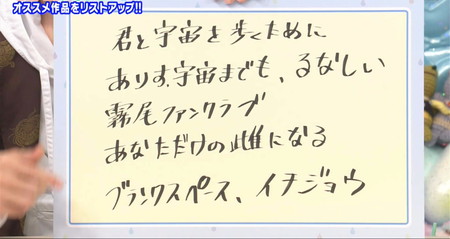 オススメ作品をリストアップ!!
君と宇宙を歩くために
ありす、宇宙までも、るなしい
霧尾ファンクラブ
あなただけの雌になる
ブランクスペース、イチジョウ